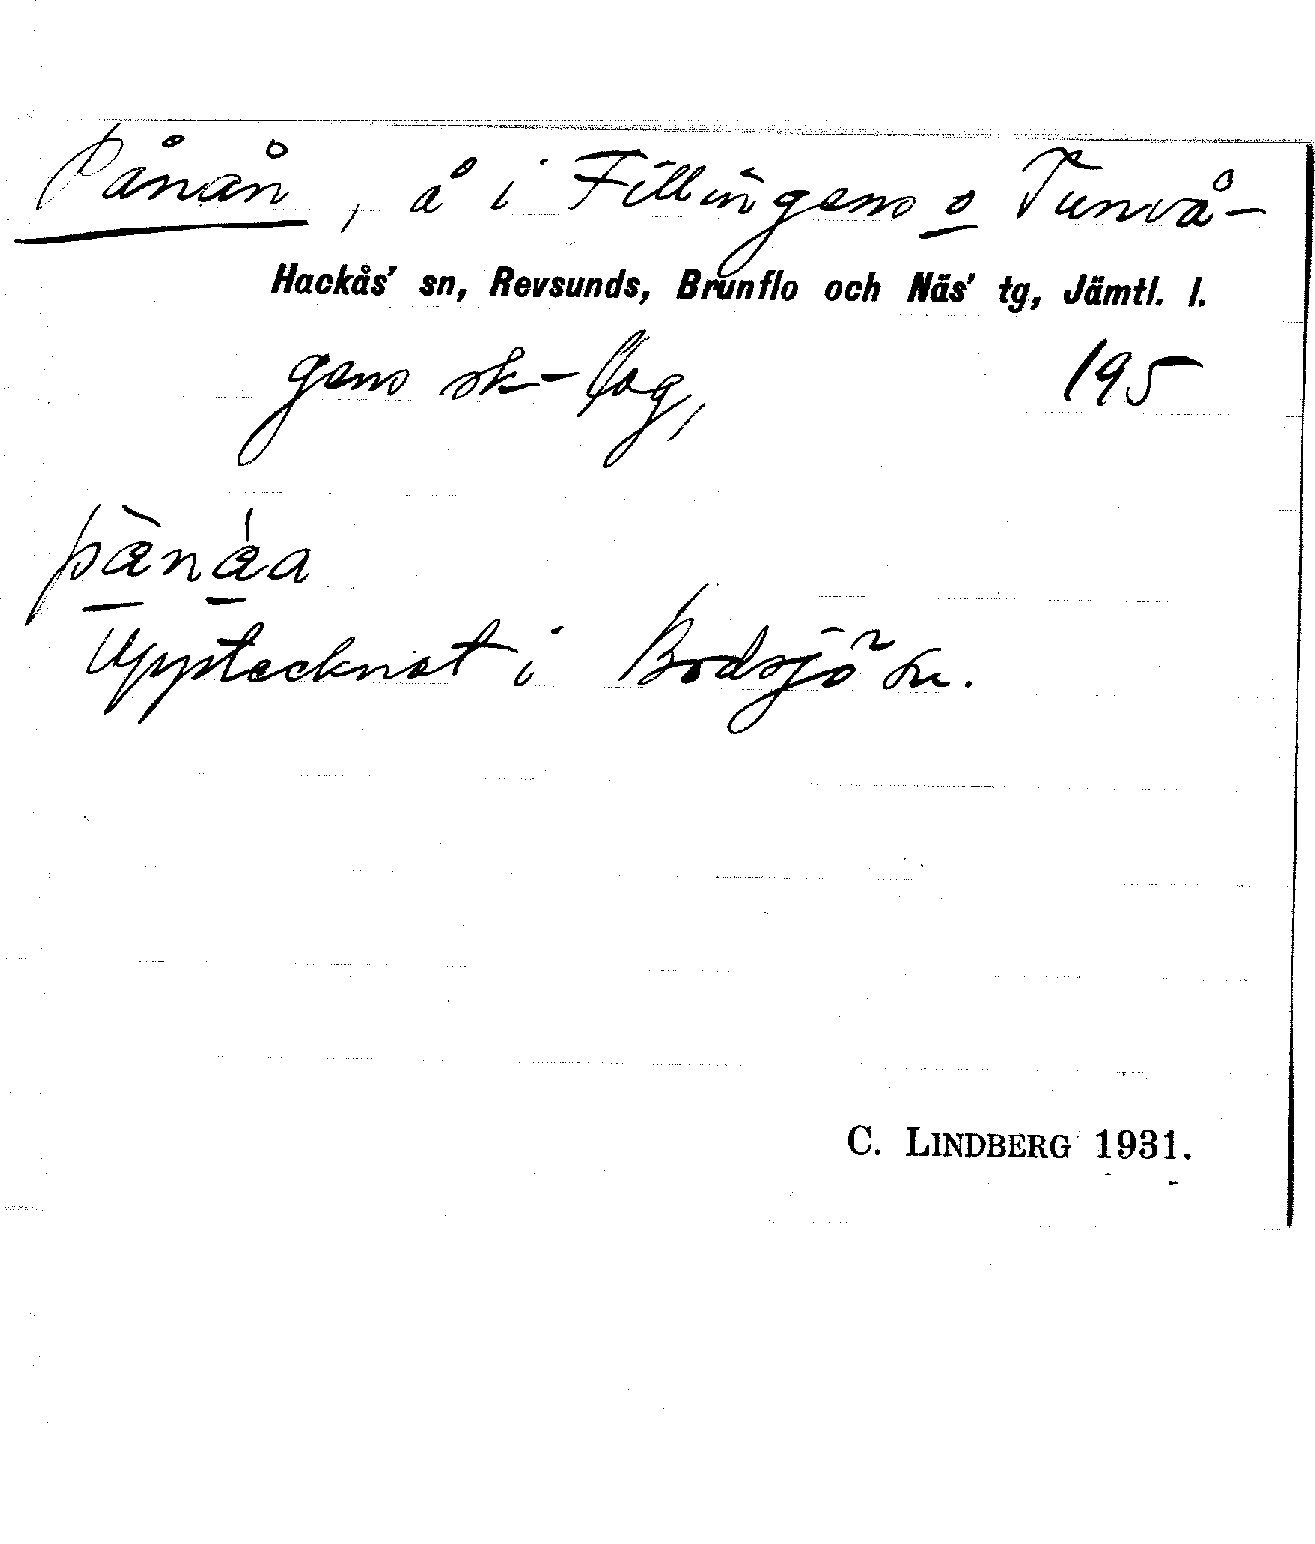 Pånån, å i Fillingens o Tunvå-
Hackås' sn, Revsunds, Brunflo och Näs' tg, Jämtl. l.
gens sk-lag, 195
pæ̀nǽa
Upptecknat i Bodsjö sn.
C. LINDBERG 1931.